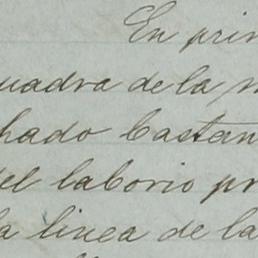 En prim
uadra de la m
hado Castan
del laborio pr
la linea de la